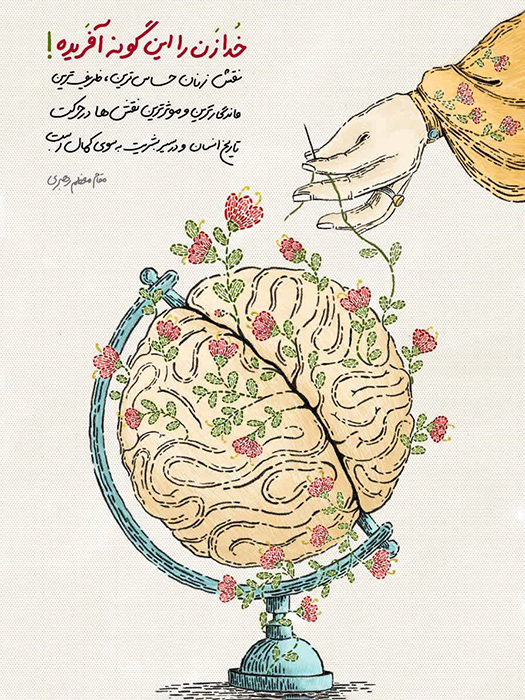 خدا زن را این گونه آفریده!
نقش زنان حساس‌ترین، ظریف‌ترین
ماندگارترین و موثرترین نقش‌ها در حرکت
تاریخ انسان و در سیر بشریت به سوی کمال است
مقام معظم رهبری